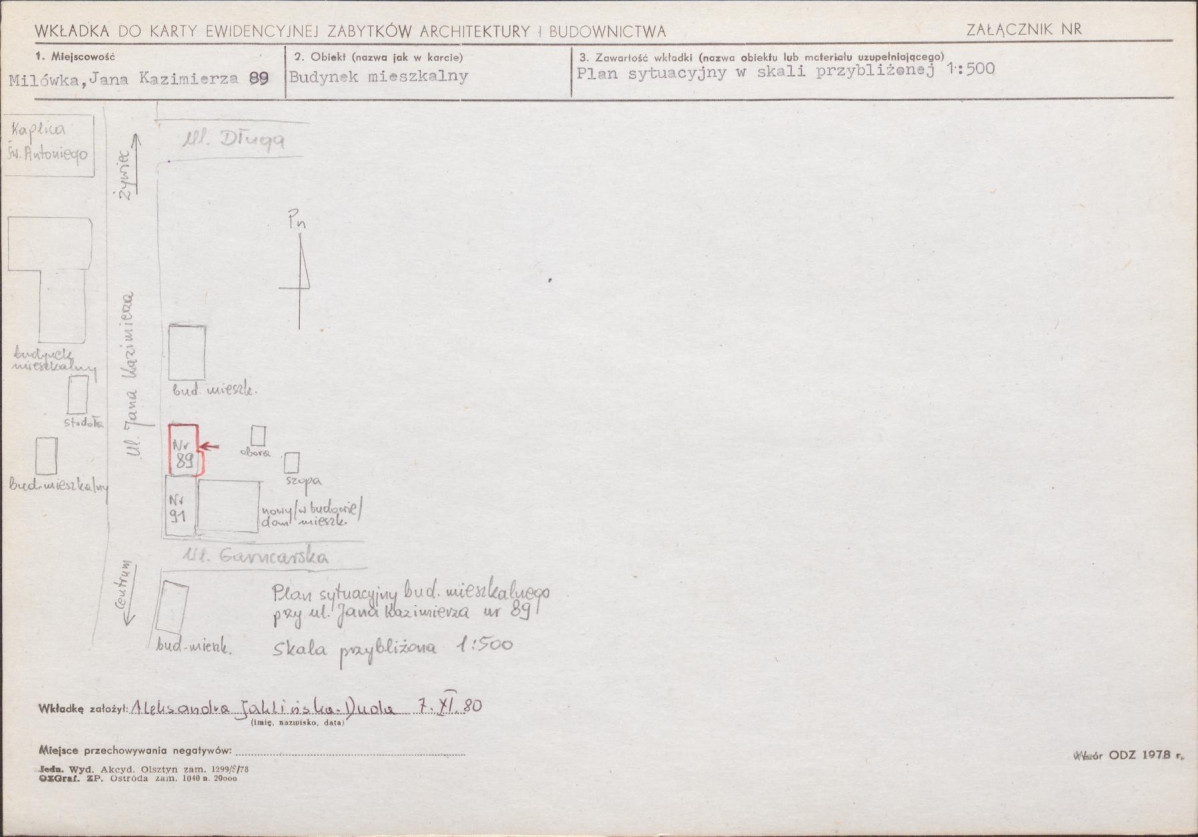 WKŁADKA DO KARTY EWIDENCYJNEJ ZABYTKÓW ARCHITEKTURY I BUDOWNICTWA
ZAŁĄCZNIK NR
1. Miejscowość
Milówka, Jana Kazimierza 89
2. Obiekt (nazwa jak w karcie)
Budynek mieszkalny
3. Zawartość wkładki (nazwa obiektu lub materiału uzupełniającego)
Plan sytuacyjny w skali przybliżonej 1:500
Kaplica
Św. Antoniego
Żywiec
Ul. Długa
Pn
Ul. Jana Kazimierza
budynek
mieszkalny
bud. mieszk.
stodoła
Nr
89
obora
bud. mieszkalny
szopa
Nr
91
nowy/w budowie/
dom mieszk.
Ul. Garncarska
Centrum
Plan sytuacyjny bud. mieszkalnego
przy ul. Jana Kazimierza nr 89
bud. mieszk.
Skala przybliżona 1:500
Wkładkę założył: Aleksandra Jaklińska-Duda 7.XI.80
(imię, nazwisko, data)
Miejsce przechowywania negatywów:
Jedn. Wyd. Akcyd. Olsztyn zam. 1299/S/78
OZGraf. ZP. Ostróda zam. 1040 n. 20000
Wzór ODZ 1978 r.